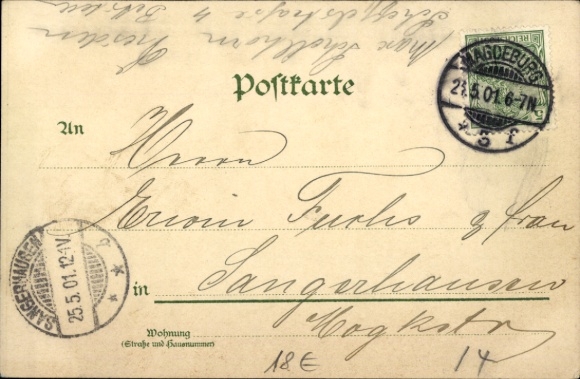 Max Schollhorn Dresden
Postkarte
MAGDEBURG
5.01.6-7N.
* 5 f
REICH
An
Herrn
Erwin Fuchs & frau
SANGERHAUSEN
25.5.01.12-1V.
* b *
in Sangerhausen
Wohnung
(Straße und Hausnummer)
Mogkstr
18€
14